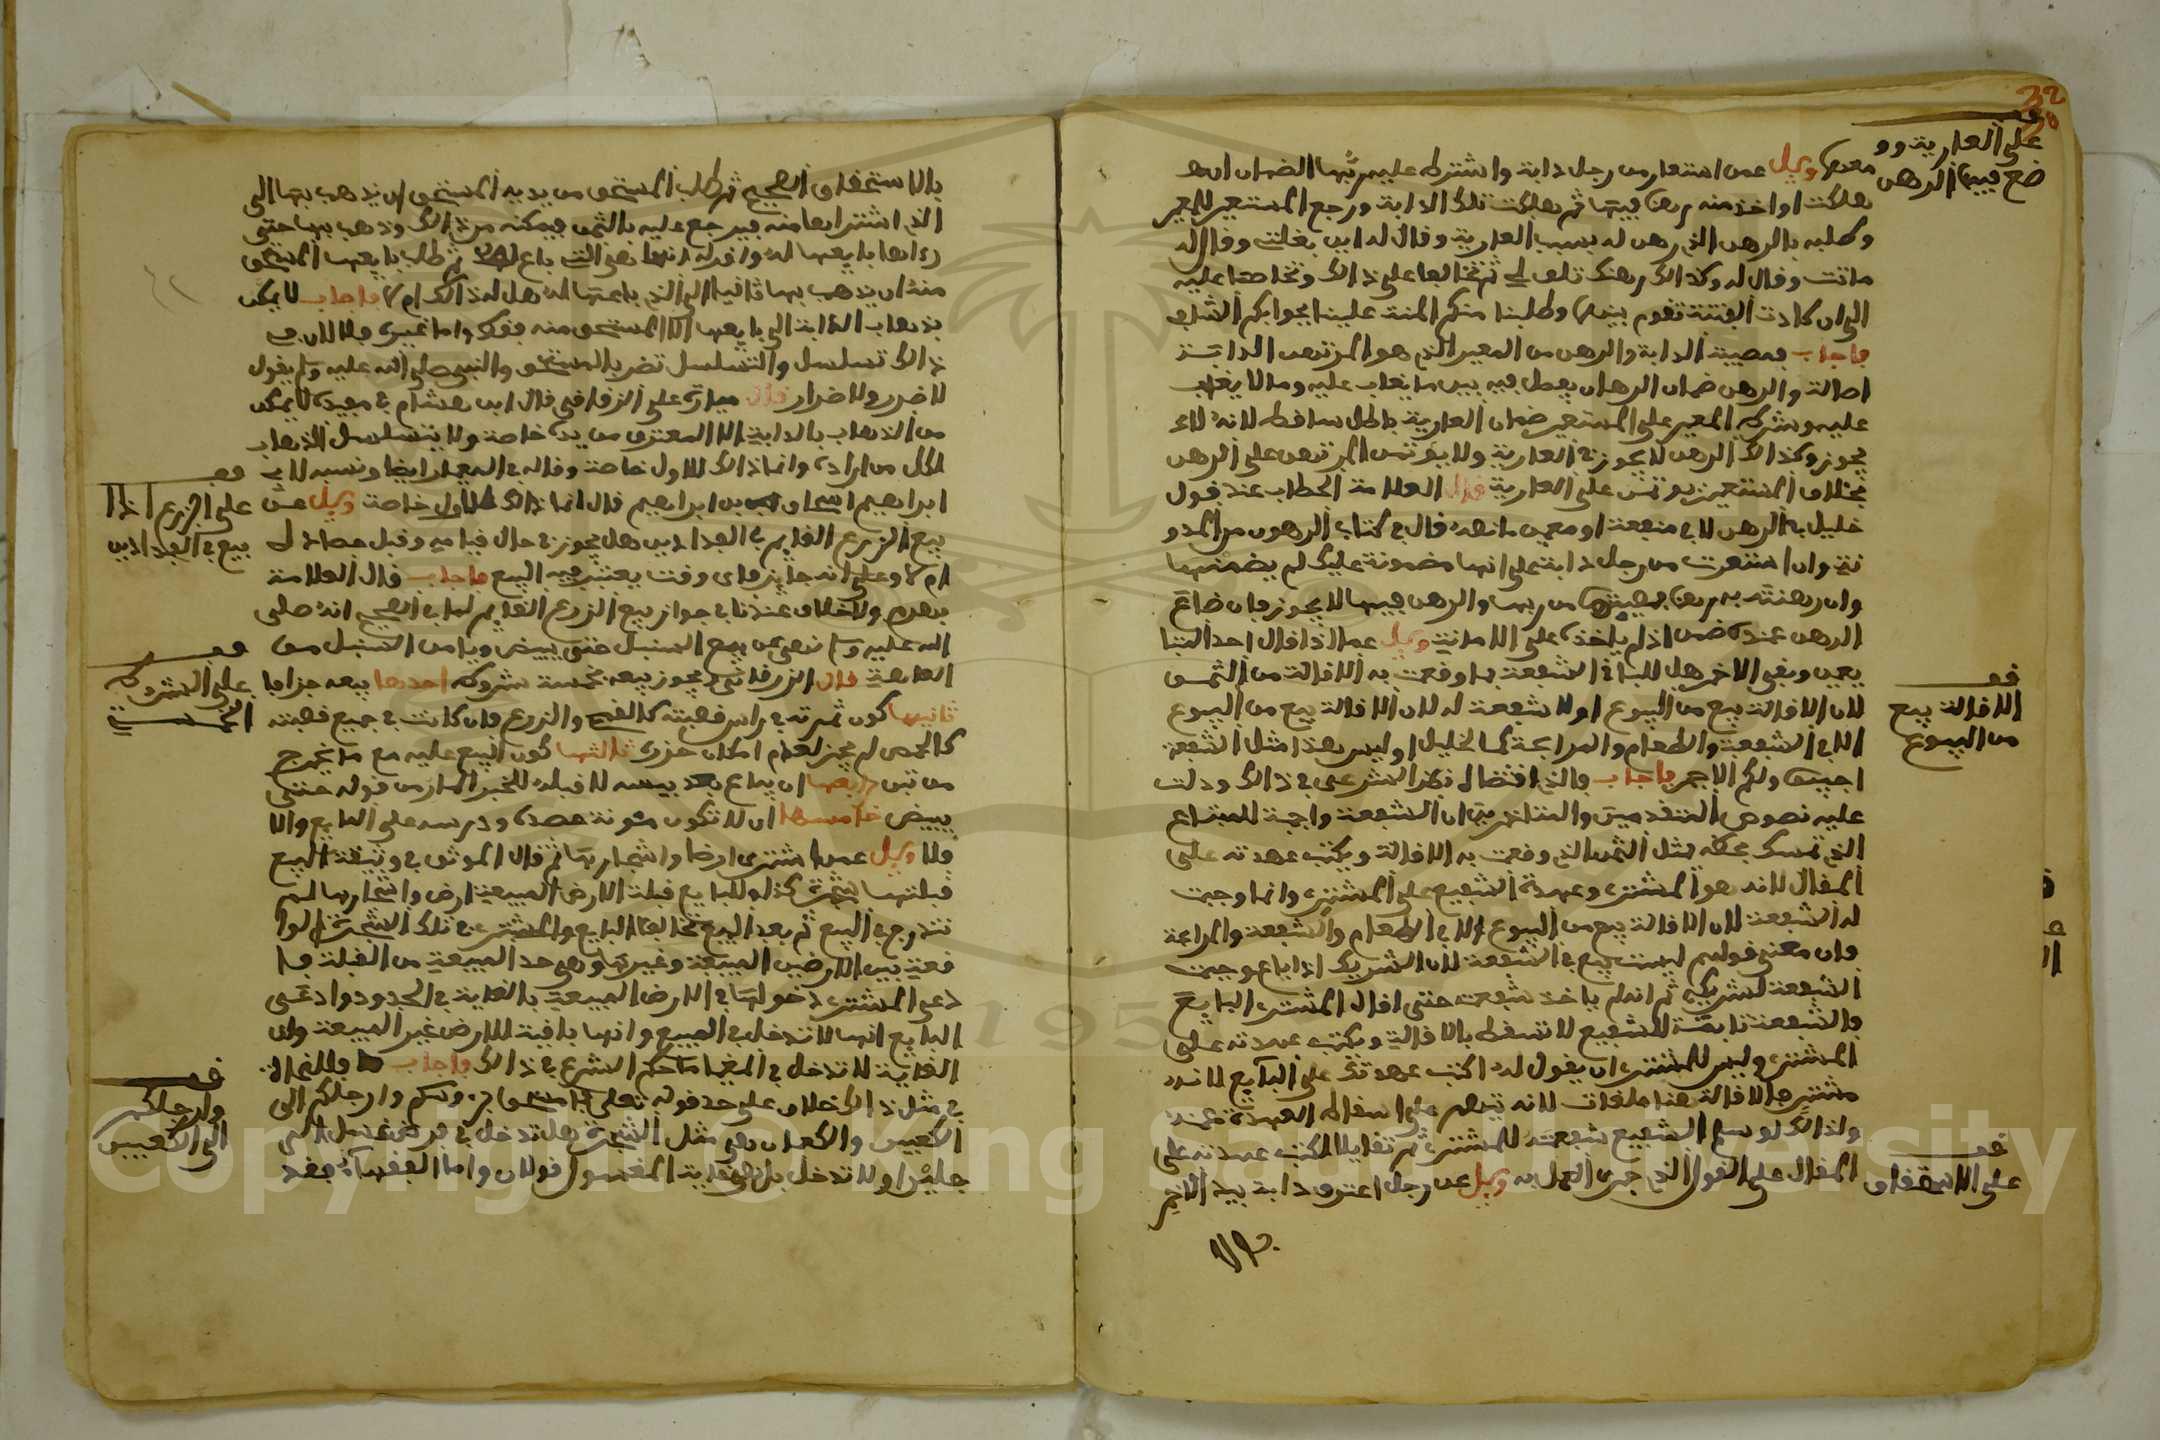 32
قف
على العارية وو
ضع فيها الرهن
معدم وسيل عمن استعار من رجل دابة واشترط عليه ربها الضمان ان
هلكت او اخذ منه رهنا فيها ثم هلكت تلك الدابة ورجع المستعير للمعير
وطلبه بالرهن الذي رهن له بسبب العارية وقال له اين بغلتي وقال له
ماتت وقال له وكذلك رهنك تلف لي ثم تخالفا على ذالك وتخاصما عليه
الى ان كادت الفتنة تقوم بينهما وطلبنا منكم المنة علينا بجوابكم الشافي
فاجاب فمصيبة الدابة والرهن من المعير الذي هو المرتهن الدابة
اصالة والرهن ضمان الرهان يفصل فيه بين ما يغاب عليه وما لا يغاب
عليه وشرط المعير على المستعير ضمان العارية باطل ساقط لانه لا
يجوز وكذالك الرهن لا يجوز في العارية ولا يؤتمن المرتهن على الرهن
بخلاف المستعير يؤتمن على العارية قال العلامة الحطاب عند قول
خليل به الرهن لا في منفعة او معين ما نصه قال في كتاب الرهون من المدو
نة وان استعرت من رجل دابة على انها مضمونة عليك لم يضمنها
وان رهنته به رهنا بمصيبتها من ربها والرهن فيها لا يجوز فان ضاع
الرهن عنده ضمن اذ لم ياخذه على الامانة وسيل عما اذا اقال احد المتبا
يعين وبقي الاخر هل للباقي الشفعة بما وقعت به الاقالة من الثمن
لان الاقالة بيع من البيوع او لا شفعة له لان الاقالة بيع من البيوع
الا في الشفعة والطعام والمرابحة كما لخليل او ليس هذا مثل الشفعة
اجيبنا ولكم الاجر فاجاب فالذي اقتضاه نظر الشرعي في ذالك ودلت
عليه نصوص المتقدمين والمتاخرين ان الشفعة واجبة للمبتاع
الذي تمسك بحظه بمثل الثمن الذي وقعت به الاقالة ويكتب عهدته على
المقال لانه هو المشتري وعهدة الشفيع على المشتري وانما وجبت
له الشفعة لان الاقالة بيع من البيوع الا في الطعام والشفعة والمرابحة
وان معنى قولهم ليست بيع في الشفعة لان الشريك اذا باع وجبت
الشفعة لشريكه ثم انه لم ياخذ شفعته حتى اقال المشتري البايع
فالشفعة ثابتة للشفيع لا تسقط بالاقالة ويكتب عهدته على
المشتري وليس للمشتري ان يقول له اكتب عهدتك على البايع لانه
مشتر فالاقالة هنا ملغات لانه يتهم على اسقاط العهدة عنه
ولذالك لو سلم الشفيع شفعته للمشتري ثم تقايلا لكتب عهدته على
المقال على القول الذي جرى العمل به وسيل عن رجل اعترف دابة بيد الاخر
بالا
قف
الاقالة بيع
من البيوع
قف
على الاستحقاق
بالاستحقاق الصحيح ثم طلب المستحق من يديه المستحق ان يذهب بها الى
الذي اشتراها منه فيرجع عليه بالثمن فيمكنه من ذالك وذهب بها حتى
رءاها بايعها له واقر له انها هي التي باع له ثم طلب بايعها المستحق
منه ان يذهب بها ثانيا الى الذي باعها له هل له ذالك ام لا فاجاب لا يمكن
بذهاب الدابة الى بايعها الا المستحق منه فقط واما غيره فلا لان في
ذالك تسلسل والتسلسل تضر بالمستحق والنبي صلى الله عليه وسلم يقول
لا ضرر ولا ضرار قال ميارة على الزقاقي قال ابن هشام في مفيده لا يمكن
من الذهاب بالدابة الا المعترف من يده خاصة ولا يتسلسل الذهاب
لكل من اراده وانما ذالك للاول خاصة وقاله في المعيار ايضا ونسبه لابي
ابراهيم اسحاق بن ابراهيم قال انما ذالك للاول خاصة وسيل عن
بيع الزرع القايم في الفدادين هل يجوز في حال قيامه وقبل حصاده
ام لا وعلى انه جايز فاي وقت يعتبر فيه البيع فاجاب قال العلامة
بهرام ولا خلاف عندنا في جواز بيع الزرع القايم لما في الصحيح انه صلى
الله عليه وسلم نهى عن بيع السنبل حتى يبيض ويامن السنبل من
العاهة قال الزرقاني ويجوز بيعه بخمسة شروط احدها بيعه جزافا
ثانيها كون ثمرته في راس قصبته كالقمح والزرع فان كانت في جميع قصبته
كالحمص لم يجز لعدم امكان حزره ثالثها كون البيع عليه مع ما يخرج
من تبن رابعها ان يباع بعد يبسه لا قبله للخبر المار من قوله حتى
يبيض خامسها ان لا تكون مؤنة حصده ودرسه على البايع والا
فلا وسيل عمن اشترى ارضا واشجارها ثم قال الموثق في وثيقة البيع
قبلتها شجرة كذا وللبايع قبلة الارض المبيعة ارض واشجارها لم
تندرج في البيع ثم بعد البيع تخالفا البايع والمشتري في تلك الشجرة الوا
قعة بين الارضين المبيعة وغيرها وهي حد المبيعة من القبلة فا
دعى المشتري دخولها في الارض المبيعة بالغاية في الحدود وادعى
البايع انها لا تدخل في المبيع وانها باقية للارض غير المبيعة وان
الغاية لا تدخل في المغيا ما حكم الشرع في ذالك فاجاب فللغزالي
في مثل ذالك خلاف على حد قوله تعلى فامسحوا برءوسكم وارجلكم الى
الكعبين والكعبان هي مثل الشجرة هل تدخل في فرض غسل الر
جلين او لا تدخل بل هي غاية المغسول قولان واما الفقهاء فقد
قف
على الزرع اذا
بيع في الفدادين
قف
على الشروط
الخمسة
قف
وارجلكم
الى الكعبين
Copyright © King Saud University
1957